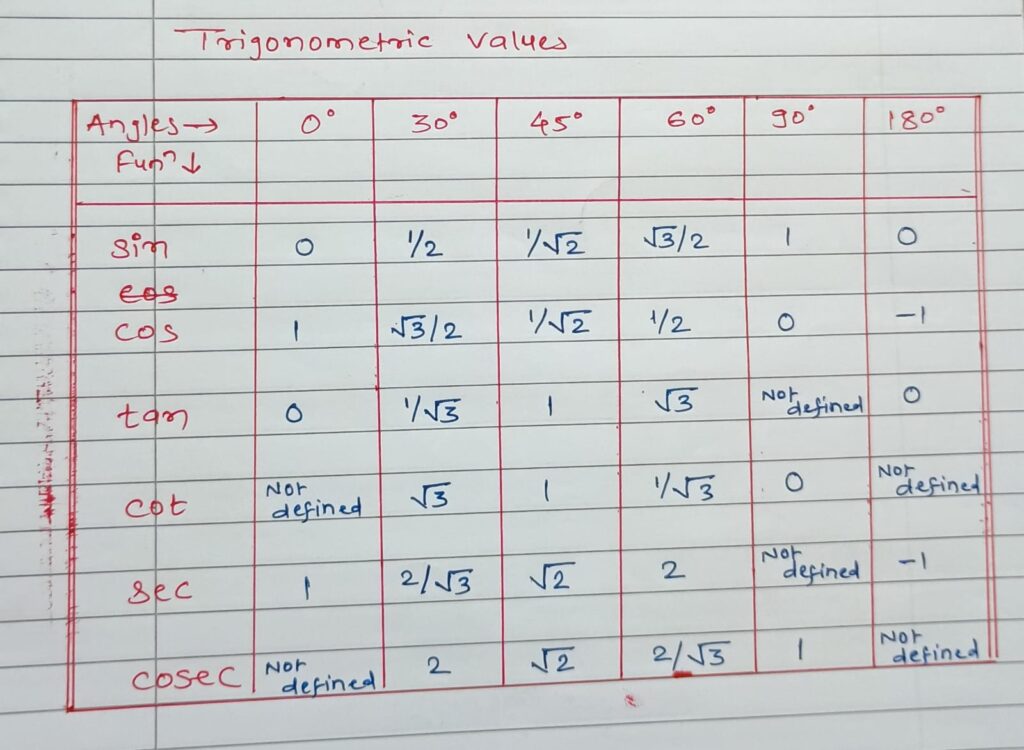 Trigonometric values
Angles→ 0° 30° 45° 60° 90° 180°
Funⁿ ↓
sin 0 1/2 1/√2 √3/2 1 0
cos
cos 1 √3/2 1/√2 1/2 0 -1
tan 0 1/√3 1 √3 Not defined 0
cot Not defined √3 1 1/√3 0 Not defined
sec 1 2/√3 √2 2 Not defined -1
cosec Not defined 2 √2 2/√3 1 Not defined